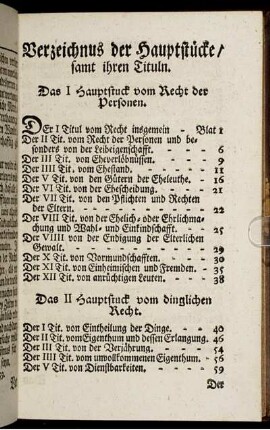 Verzeichnus der Hauptstücke/
samt ihren Tituln.
Das I Hauptstuck vom Recht der
Personen.
DEr I Titul vom Recht insgemein - Blat 1
Der II Tit. vom Recht der Personen und be-
sonders von der Leibeigenschafft. - - 6
Der III Tit. von Eheverlöbnüssen. - - 9
Der IIII Tit. vom Ehestand. - - 11
Der V Tit. von den Gütern der Eheleuthe. - 16
Der VI Tit. von der Ehescheidung. - - 21
Der VII Tit. von den Pflichten und Rechten
der Eltern. - - - - 22
Der VIII Tit. von der Ehelich- oder Ehrlichma-
chung und Wahl- und Einkindschafft. - 25
Der VIIII Tit. von der Endigung der Elterlichen
Gewalt. - - - - 29
Der X Tit. von Vormundschafften. - - 30
Der XI Tit. von Einheimischen und Fremden. - 35
Der XII Tit. von anrüchtigen Leuten. - - 38
Das II Hauptstuck vom dinglichen
Recht.
Der I Tit. von Eintheilung der Dinge. - - 40
Der II Tit. vom Eigenthum und dessen Erlangung. 46
Der III Tit. von der Verjährung. - - 54
Der IIII Tit. vom unvollkommenen Eigenthum. - 56
Der V Tit. von Dienstbarkeiten. - - 59
Der